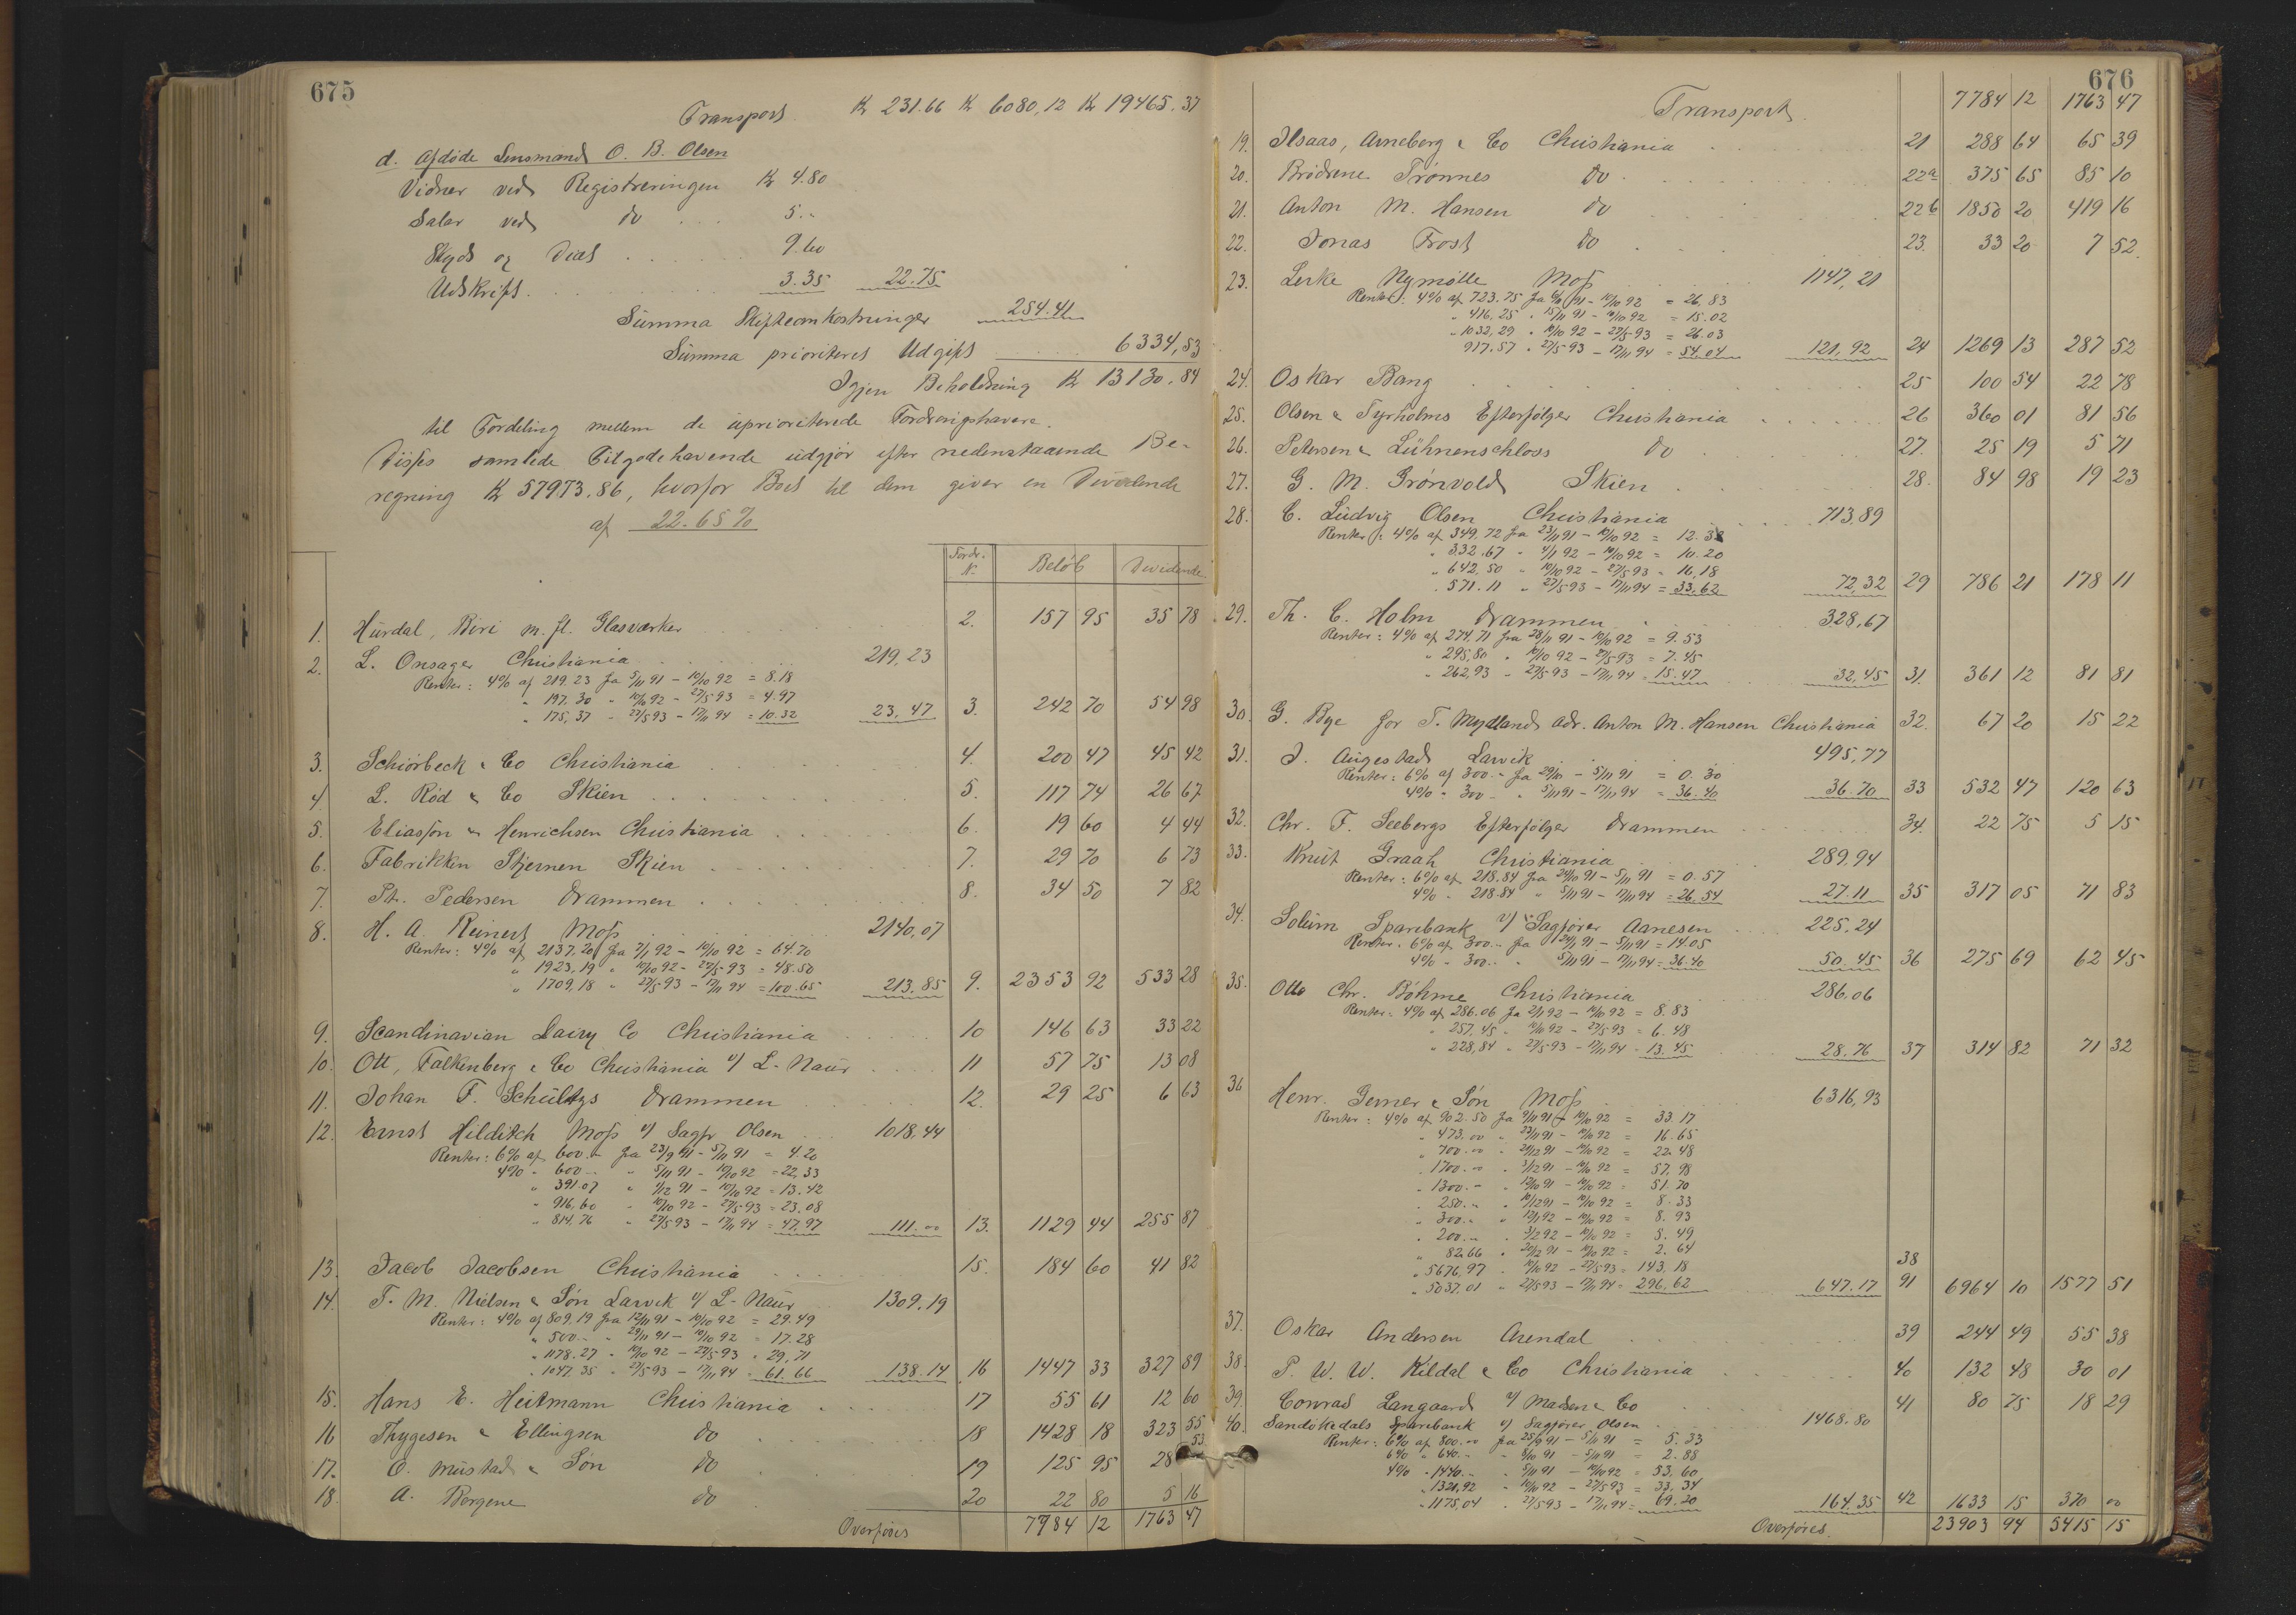 675
Transport Kr 231.66 Kr 6080,12 Kr 19465.37
d. Afdøde Lensmand O. B. Olsen
Vidner ved Registreringen Kr 4.80
Salar ved do 5.-
Skyds og Diæt 9.60
Udskrift 3.35 22.75
Summa Skifteomkostninger 254.41
Summa prioriteret Udgift 6334,53
Igjen Beholdning Kr 13130.84
til Fordeling mellem de uprioriterede Fordringshavere.
Disses samlede Tilgodehavende udgjør efter nedenstaaende Be-
regning Kr 57973.86, hvorfor Boet til dem giver en Dividende
af 22.65%
Fordr. N. Beløb Dividende
1. Hurdal, Biri m. fl. Glasværker 2. 157 95 35 78
2. L. Onsager Christiania 219,23
Renter: 4% af 219.23 fra 5/11 91 - 10/10 92 = 8.18
" 197.30 " 10/10 92 - 27/5 93 = 4.97
" 175,37 " 27/5 93 - 17/11 94 = 10.32 23,47 3. 242 70 54 98
3. Schiørbeck & Co Christiania 4. 200 47 45 42
4. L. Rød & Co Skien 5. 117 74 26 67
5. Eliasson & Henrichsen Christiania 6. 19 60 4 44
6. Fabrikken Stjernen Skien 7. 29 70 6 73
7. Th. Pedersen Drammen 8. 34 50 7 82
8. H. A. Reinert Moss 2140,07
Renter: 4% af 2137,20 fra 7/1 92 - 10/10 92 = 64.70
" 1923,19 " 10/10 92 - 27/5 93 = 48.50
" 1709,18 " 27/5 93 - 17/11 94 = 100.65 213.85 9. 2353 92 533 28
9. Scandinavian Dairy Co Christiania 10 146 63 33 22
10. Ott, Falkenberg & Co Christiania v/ L. Naur 11 57 75 13 08
11. Johan F. Schultzs Drammen 12. 29 25 6 63
12. Ernst Hilditch Moss v/ Sagfr Olsen 1018,44
Renter: 6% af 600.- fra 23/9 91 - 5/11 91 = 4.20
4% " 600.- " 5/11 91 - 10/10 92 = 22,33
" 391.07 " 1/12 91 - 10/10 92 = 13.42
" 916,60 " 10/10 92 - 27/5 93 = 23.08
" 814,76 " 27/5 93 - 17/11 94 = 47.97 111.00 13. 1129 44 255 87
13. Jacob Jacobsen Christiania 15. 184 60 41 82
14. T. M. Nielsen & Søn Larvik v/ L. Naur 1309,19
Renter: 4% af 809.19 fra 12/11 91 - 10/10 92 = 29.49
" 500.- " 29/11 91 - 10/10 92 = 17.28
" 1178.27 " 10/10 92 - 27/5 93 " 29,71
" 1047.35 " 27/5 93 - 17/11 94 " 61.66 138.14 16 1447 33 327 89
15. Hans E. Heitmann Christiania 17 55 61 12 60
16 Thygesen & Ellingsen do 18 1428 18 323 55
17. O. Mustad & Søn do 19 125 95 28 53
18. A. Borgene do 20 22 80 5 16
Overføres 7784 12 1763 47
676
Transport 7784 12 1763 47
19. Ilsaas, Arneberg & Co Christiania 21 288 64 65 39
20. Brødrene Trønnes do 22a 375 65 85 10
21. Anton M. Hansen do 22b 1850 20 419 16
22. Jonas Frost do 23. 33 20 7 52
23. Lerke Nymølle Moss 1147,21
Renter: 4% af 723.75 fra 91 - 10/10 92 = 26,83
" 416,25 " 15/11 91 - 10/10 92 = 15.02
" 1032,29 " 10/10 92 - 27/5 93 = 26.03
917.57 " 27/5 93 - 17/11 94 = 54.04 121,92 24 1269 13 287 52
24. Oskar Bang 25 100 54 22 78
25. Olsen & Tyrholms Efterfølger Christiania 26 360 01 81 56
26. Petersen & Lühnenschloss do 27. 25 19 5 71
27. G. M. Grønvold Skien 28. 84 98 19 23
28. C. Ludvig Olsen Christiania 713,89
Renter: 4% af 349.72 fra 23/11 91 - 10/10 92 = 12.32
" 332.67 " 4/1 92 - 10/10 92 = 10.20
" 642,50 " 10/10 92 - 27/5 93 - 16,18
571.11 " 27/5 93 - 17/11 94 = 33.62 72,32 29 786 21 178 11
29. Th. C. Holm Drammen 328,67
Renter: 4% af 274.71 fra 28/11 91 - 10/10 92 = 9.53
" 295,80 " 10/10 92 - 27/5 93 = 7.45
" 262,93 " 27/5 93 - 17/11 94 = 15.47 32,45 31. 361 12 81 81
30. G. Bye for T. Mydland adr. Anton M. Hansen Christiania 32. 67 20 15 22
31. J. Augestad Larvik 495,77
Renter: 6% af 300.- fra 29/10 - 5/11 91 = 0.30
4% " 300 - " 5/11 91 - 17/11 94 = 36.40 36.70 33 532 47 120 63
32. Chr. F. Seebergs Efterfølger Drammen 34. 22 75 5 15
33. Knut Graah Christiania 289.94
Renter: 6% af 218.84 fra 24/10 91 - 5/11 91 = 0.57
4% " 218.84 " 5/11 91 - 17/11 94 = 26.54 27.11 35 317 05 71 83
34. Solum Sparebank v/ Sagfører Aanesen 225.24
Renter: 6% af 300.- fra 24/1 91 - 5/11 91 = 14.05
4% " 300.- " 5/11 91 - 17/11 94 = 36.40 50.45 36 275 69 62 45
35. Otto Chr. Böhme Christiania 286.06
Renter: 4% af 286.06 fra 2/1 92 - 10/10 92 = 8.83
" 257,45 " 10/10 92 - 27/5 93 = 6.48
" 228,84 " 27/5 93 - 17/11 94 - 13.45 28.76 37 314 82 71 32
36 Henr. Gerner & Søn Moss 6316,93
Renter: 4% af 902.50 fra 9/11 91 - 10/10 92 = 33.17
" 473.00 " 23/11 91 - 10/10 92 = 16.65
" 700.00 " 21/12 91 - 10/10 92 = 22.48
" 1700.00 " 3/12 91 - 10/10 92 = 57.98
" 1300.- " 12/10 91 - 10/10 92 = 51.70
" 250.- " 10/12 91 - 10/10 92 = 8.33
" 300.- " 12/1 92 - 10/10 92 = 8.93
" 200.- " 3/2 92 - 10/10 92 = 5.49
" 82.66 " 20/12 91 - 10/10 92 = 2.64
" 5676,97 " 10/10 92 - 27/5 93 = 143.18 38
" 5037.01 " 27/5 93 - 17/11 94 = 296.62 647.17 91 6964 10 1577 51
37. Oskar Andersen Arendal 39 244 49 55 38
38. P. W. W. Kildal & Co Christiania 40 132 48 30 01
39. Conrad Langaard v/ Madsen & Co 41 80 75 18 29
40. Sandökedals Sparebank v/ Sagfører Olsen 1468.80
Renter: 6% af 800.00 fra 25/9 91 - 5/11 91 = 5.33
6% " 640.- " 8/10 91 - 5/11 91 = 2.88
4% " 1440.- " 5/11 91 - 10/10 92 = 53.60
" 1321,92 " 10/10 92 - 27/5 93 = 33.34
" 1175,04 " 27/5 93 - 17/11 94 = 69.20 164.35 42 1633 15 370 00
Overføres. 23903 94 5415 15